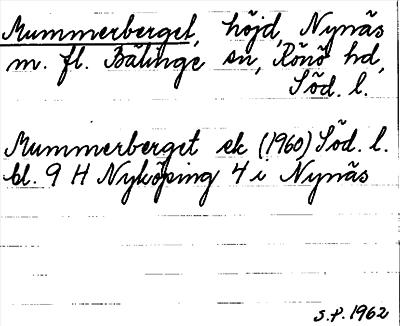 Mummerberget, höjd, Nynäs
m. fl. Bälinge sn, Rönö hd,
Söd. l.
Mummerberget ek (1960) Söd. l.
bl. 9 H Nyköping 4 i Nynäs
S.P. 1962